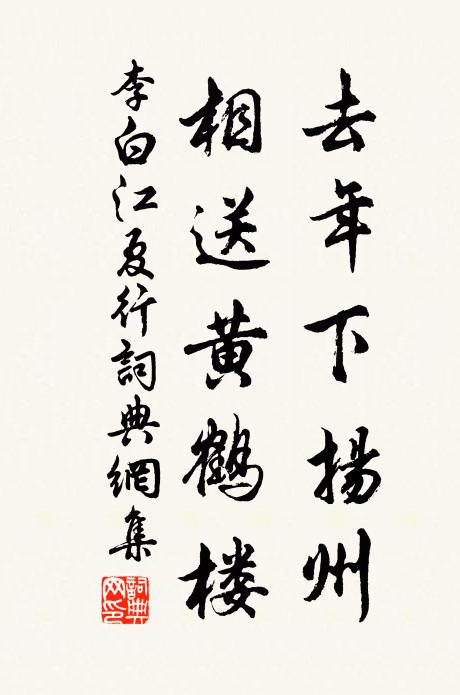 去年下揚州
相送黄鶴楼
李白江夏行詞典網集
詞典
网印